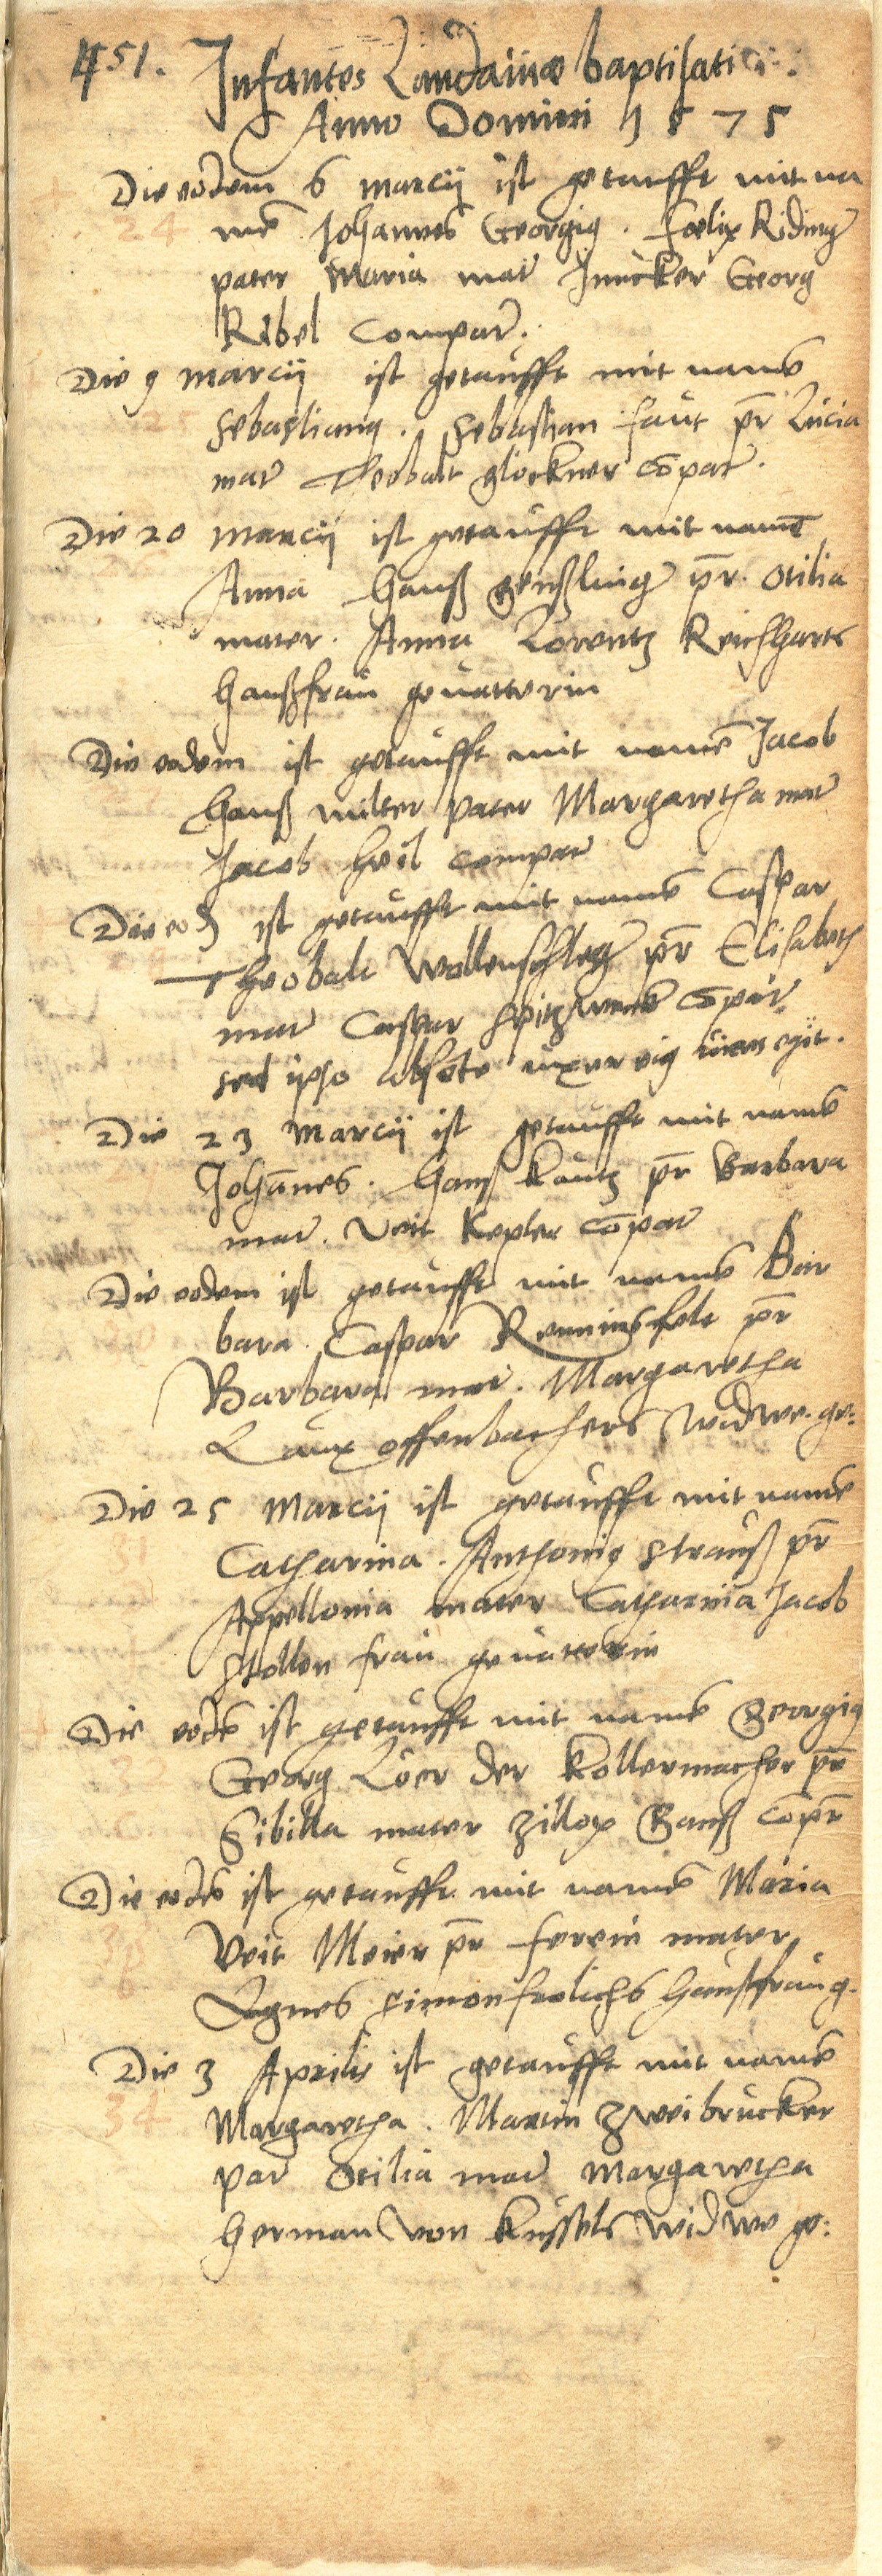 451. Infantes Landauiæ baptisati
Anno Domini 1575
Die eodem 6 Marcij ist getaufft mit na
24 mē Johannes Georgig. Fœlix Riding
pater Maria mat Juncker Georg
Ribel Compar.
Die 9 Marcij ist getaufft mit namē
25 Sebastiang. Sebastian faut pr̄ Lucia
mat Theobalt glockner cōpat.
Die 20 Marcij ist getaufft mit namē
Anna Hanß genßling pr̄. Otilia
mater. Anna Lorentz Reichharts
haußfrau geuatterin
Die eodem ist getaufft mit namē Jacob
Hanß milter pater Margaretha mat
Jacob heil compar
Die eod ist getaufft mit namē Caspar
Theobalt Wollenschleg pr̄ Elisabeth
mat Caspar Spitz cōpar.
sed ipso absēte uxor eig uices egit.
Die 23 Marcij ist getaufft mit namē
Johānes. Hanß kautz pr̄ Barbara
mat. Veit kepler cōpar
Die eodem ist getaufft mit namē Bar
bara. Caspar Renningsfelt pr̄
Barbara mat. Margaretha
Laux offenbachers widwe ge:
Die 25 Marcij ist getaufft mit namē
Catharina. Anthonig Strauß pr̄
Appellonia mater Catharina Jacob
Stollen frau geuatterin
Die eodē ist getaufft mit namē Georgig
Georg Löer der kollermacher pr̄
Sibilla mater Zillox Hanß cōpr̄
Die eodē ist getaufft mit namē Maria
Veit Meier pr̄ mater
Agnes Simon frolichs haußfrau g.
Die 3 Aprilis ist getaufft mit namē
34 Margaretha. Martin Zweibrucker
par Otilia mat Margaretha
Herman von kussels widwe ge: